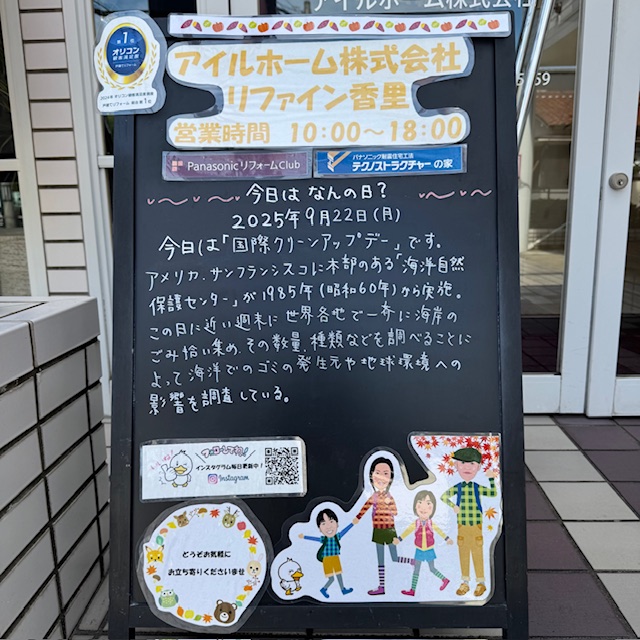 アイルホーム株式会社
第1位
オリコン
顧客満足度調査
戸建てリフォーム
2024年 オリコン顧客満足度調査
戸建てリフォーム 総合 第1位
アイルホーム株式会社
リファイン香里
営業時間 10:00～18:00
Panasonic リフォームClub
パナソニック耐震住宅工法
テクノストラクチャーの家
今日は なんの日？
2025年9月22日(月)
今日は「国際クリーンアップデー」です。
アメリカ、サンフランシスコに本部のある「海洋自然
保護センター」が1985年(昭和60年)から実施。
この日に近い週末に世界各地で一斉に海岸の
ごみ拾い集め、その数量、種類などを調べることに
よって海洋でのゴミの発生元や地球環境への
影響を調査している。
インスタグラム毎日更新中！
Instagram
どうぞお気軽に
お立ち寄りくださいませ